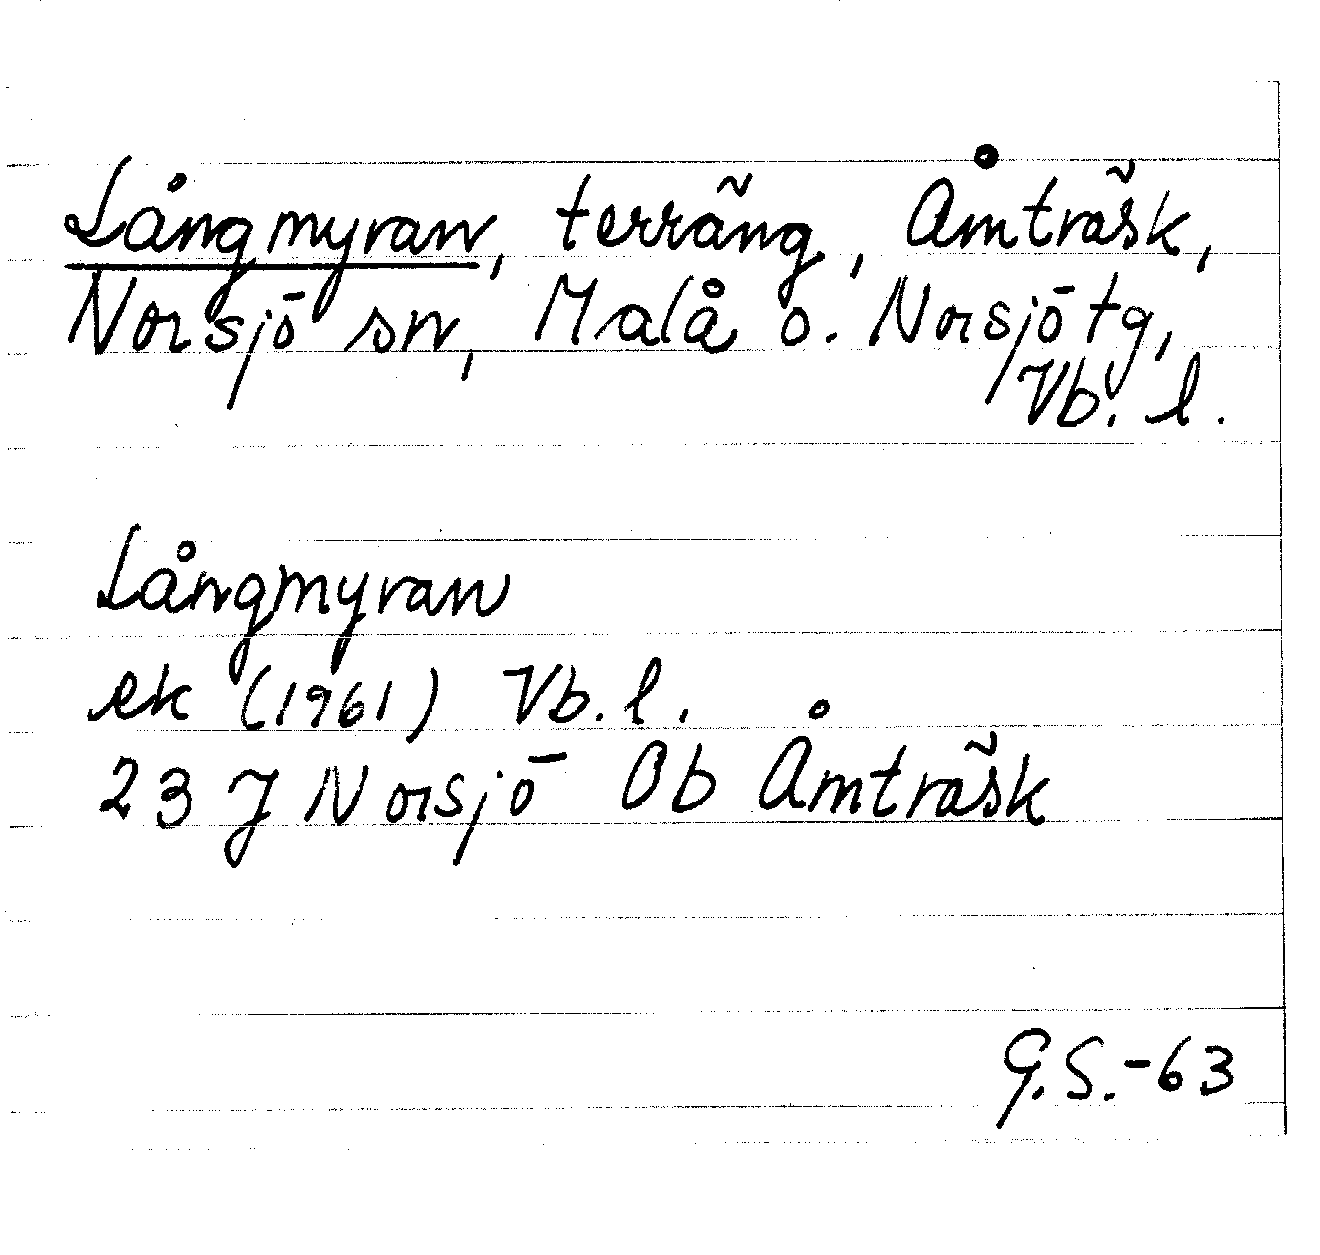 Långmyran, terräng, Åmträsk,
Norsjö sn, Malå o. Norsjö tg,
Vb. l.
Långmyran
ek (1961) Vb. l.
23 J Norsjö Ob Åmträsk
G.S.-63